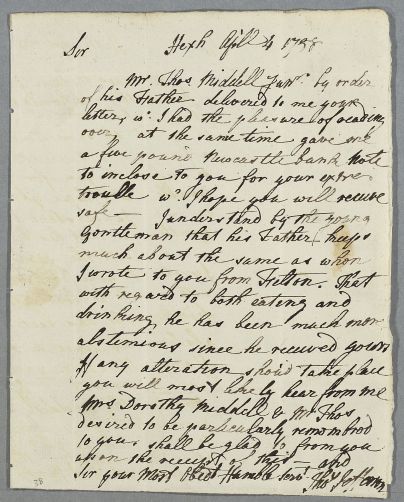 Sir Hexh April 4 1788
Mr. Thos Middell Junr. by order
of his Father delivered to me your
letter, wc. I had the pleasure of reading
over, at the same time gave me
a five pound Newcastle bank Note
to inclose to you for your extra
trouble wc. I hope you will receive
safe — I understand by the young
Gentleman that his Father keeps
much about the same as when
I wrote to you from Felton. That
with regard to both eating and
drinking he has been much more
abstemious since he received yours
If any alteration shoud take place
you will most likely hear from me
Mrs Dorothy Middell & Mr Thos.
desired to be particularly remembred
to you. shall be glad to from you
upon the receipt of this and
Sir your Most Obedt Humble Servt Thos
38